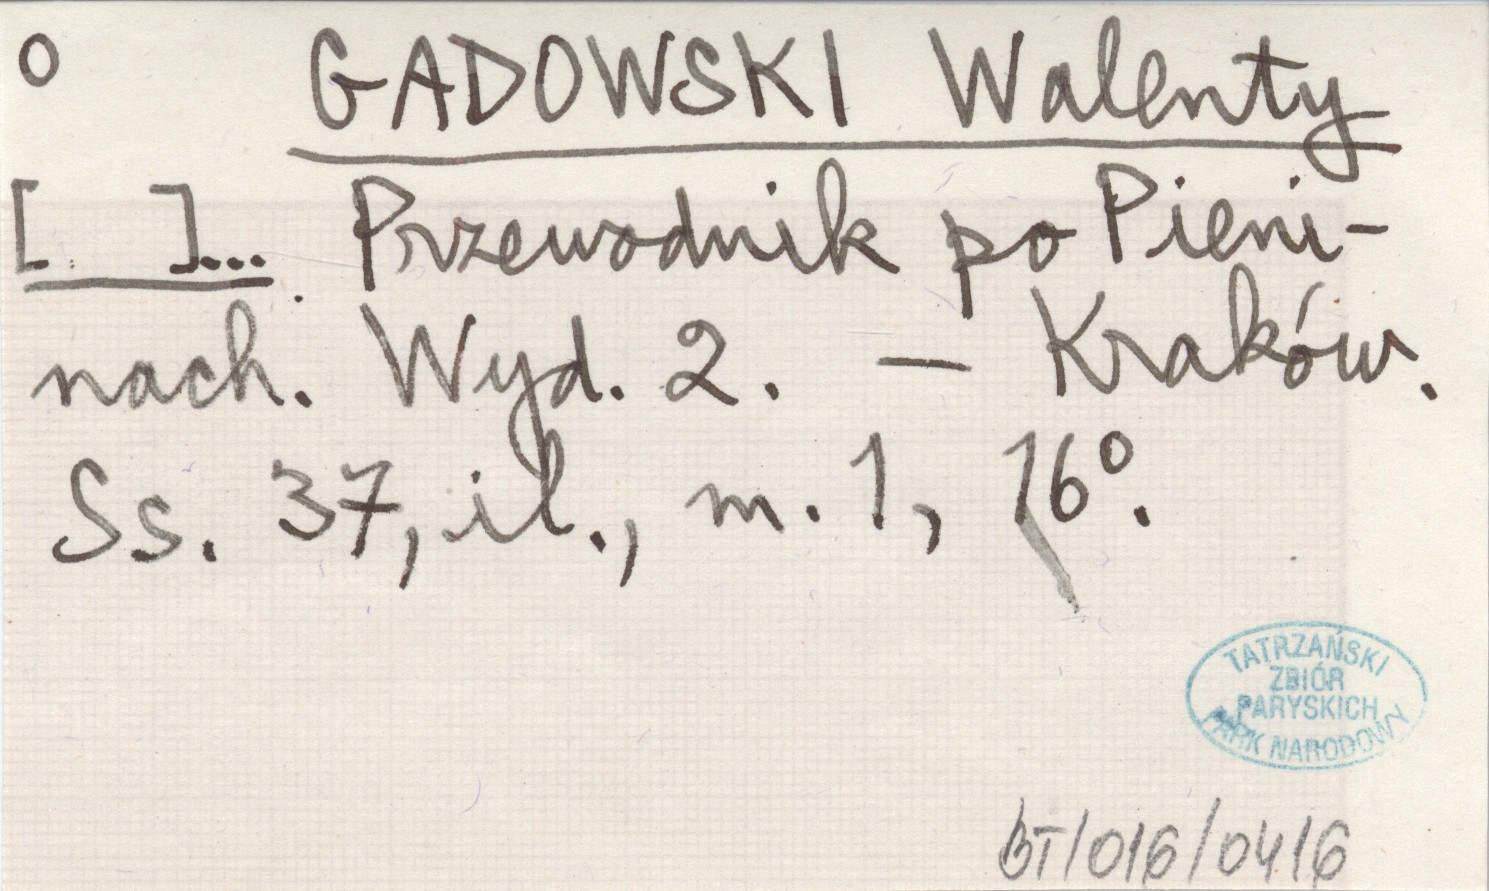 o GADOWSKI Walenty
[ ]... Przewodnik po Pieni-
nach. Wyd. 2. — Kraków.
Ss. 37, il., m. 1, 16º.
TATRZAŃSKI
ZBIÓR
PARYSKICH
PARK NARODOWY
BT/016/0416